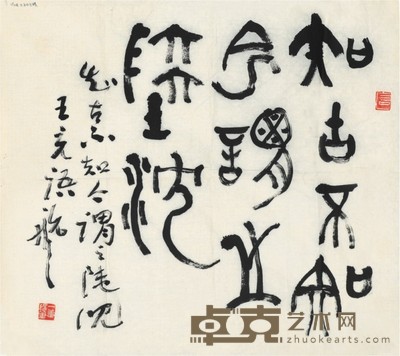 知古不知
今謂之
陸沈
知古不知今謂之陸沈
王充語
卓克艺术网
zhuokearts.com